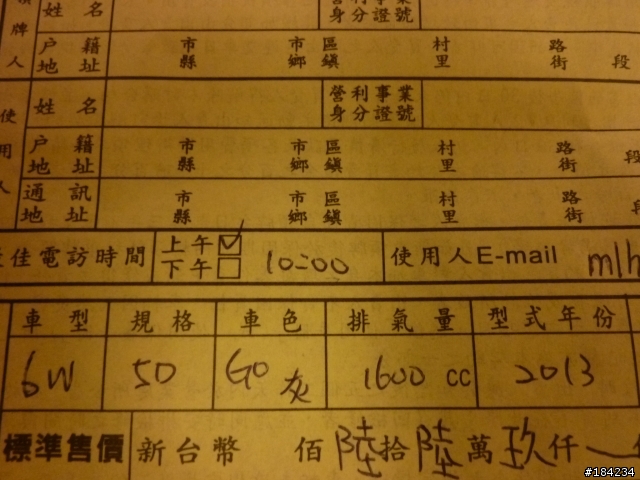 領牌人 姓名 營利事業 身分證號
戶籍地址 市縣 市鄉 區鎮 村里 路街 段
使用人 姓名 營利事業 身分證號
戶籍地址 市縣 市鄉 區鎮 村里 路街 段
通訊地址 市縣 市鄉 區鎮 村里 路街 段
佳電訪時間 上午☑ 下午☐ 10:00 使用人E-mail mlh
車型 規格 車色 排氣量 型式年份
6W 5D G0灰 1600 cc 2013
標準售價 新台幣 佰陸拾陸萬玖仟一
#184234